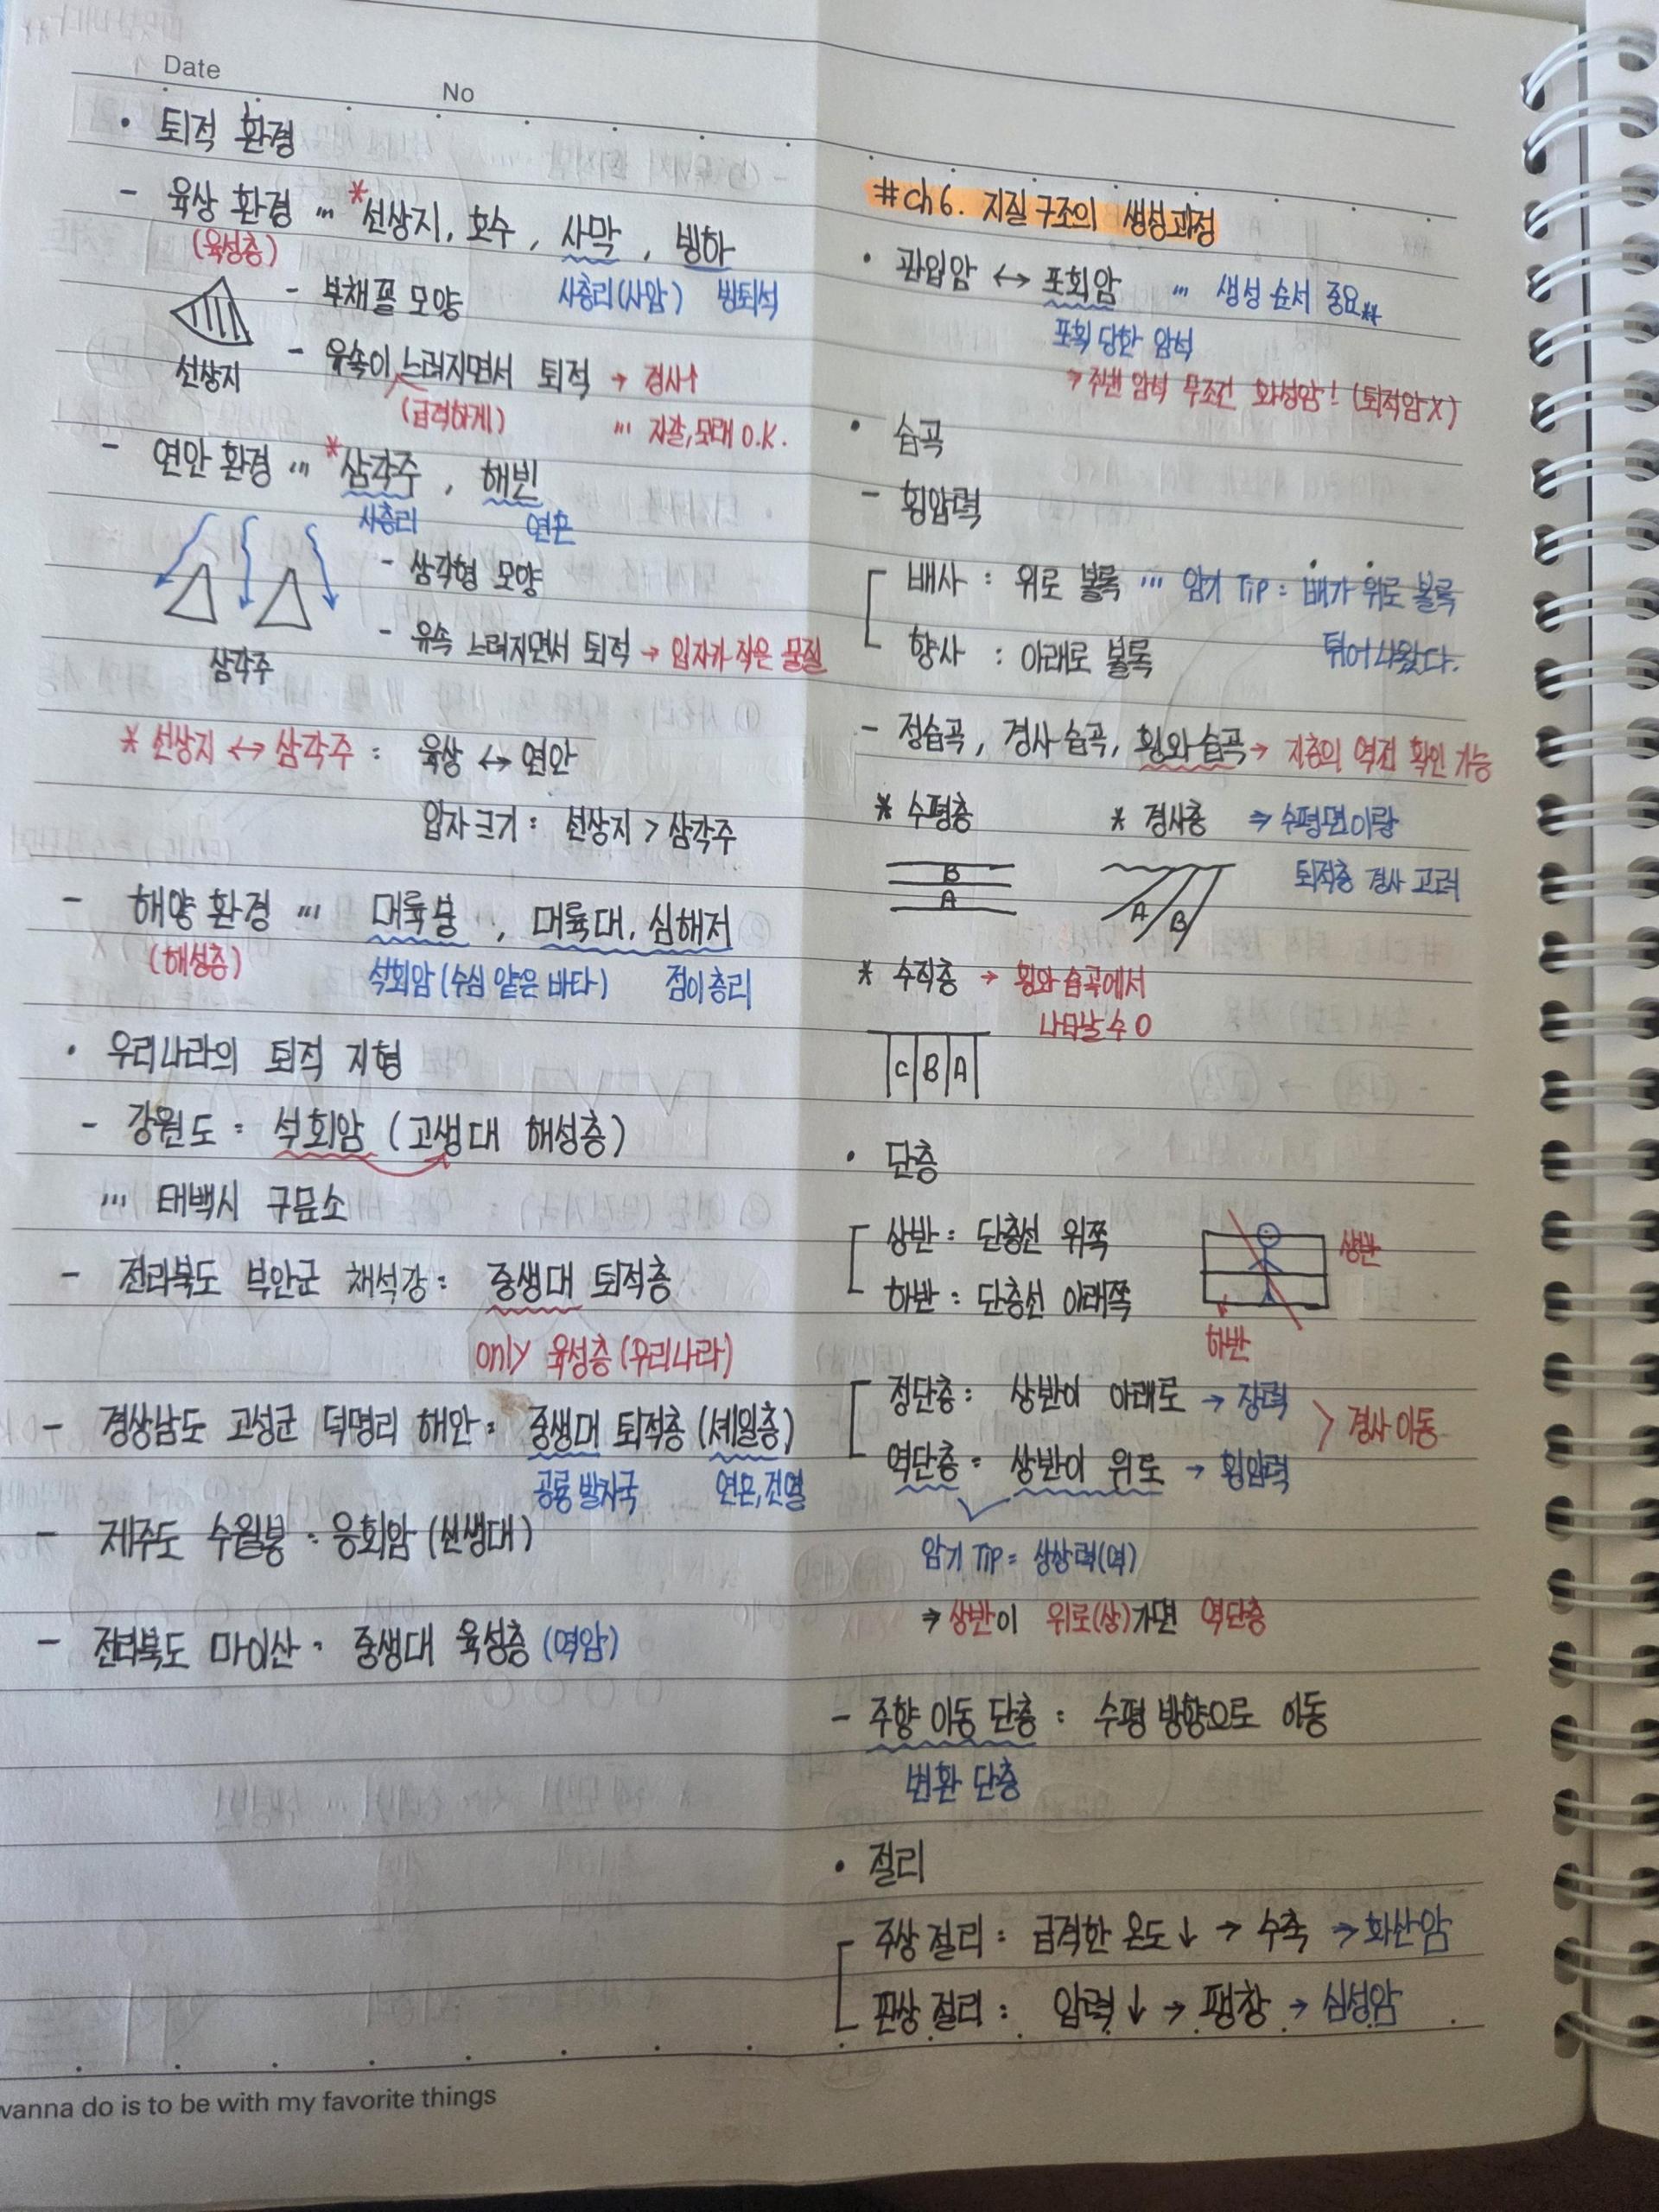 Date
No
• 퇴적 환경
- 육상 환경 … *선상지, 호수, 사막, 빙하
(육성층)
사층리(사암) 빙퇴석
- 부채꼴 모양
- 유속이 느려지면서 퇴적 → 경사↑
(급격하게)
… 자갈, 모래 O.K.
선상지
- 연안 환경 … *삼각주, 해빈
사층리 연흔
- 삼각형 모양
- 유속 느려지면서 퇴적 → 입자가 작은 물질
삼각주
* 선상지 ↔ 삼각주 : 육상 ↔ 연안
입자 크기 : 선상지 > 삼각주
- 해양 환경 … 대륙붕, 대륙대, 심해저
(해성층)
석회암(수심 얕은 바다) 점이층리
• 우리나라의 퇴적 지형
- 강원도 : 석회암 (고생대 해성층)
… 태백시 구문소
- 전라북도 부안군 채석강 : 중생대 퇴적층
only 육성층(우리나라)
- 경상남도 고성군 덕명리 해안 : 중생대 퇴적층 (셰일층)
공룡 발자국 연흔, 건열
- 제주도 수월봉 : 응회암 (신생대)
- 전라북도 마이산 : 중생대 육성층 (역암)
wanna do is to be with my favorite things
#ch6. 지질 구조의 생성과정
• 관입암 ↔ 포획암 … 생성 순서 중요**
포획 당한 암석
→ 주변 암석 무조건 화성암! (퇴적암X)
• 습곡
- 횡압력
배사 : 위로 볼록 … 암기 TiP : 배가 위로 볼록
튀어나왔다.
향사 : 아래로 볼록
- 정습곡, 경사습곡, 횡와습곡 → 지층의 역전 확인 가능
* 수평층
B
A
* 경사층 ⇒ 수평면이랑
퇴적층 경사 고려
A B
* 수직층 → 횡와습곡에서
나타날 수 O
C B A
• 단층
상반 : 단층선 위쪽
하반 : 단층선 아래쪽
상반
하반
정단층 : 상반이 아래로 → 장력
역단층 : 상반이 위로 → 횡압력
> 경사 이동
암기 TiP = 상상력(역)
⇒ 상반이 위로(상)가면 역단층
- 주향 이동 단층 : 수평 방향으로 이동
변환 단층
• 절리
주상 절리 : 급격한 온도↓ → 수축 → 화산암
판상 절리 : 압력↓ → 팽창 → 심성암